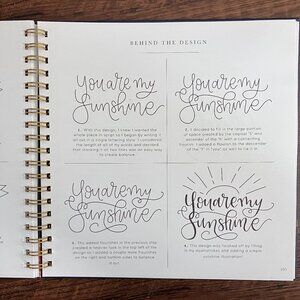 BEHIND THE DESIGN
You are my
Sunshine
You are my
Sunshine
1. With this design, I knew I wanted the
whole piece in script so I began by writing it
out in a single lettering style. I considered
the length of all of my words and decided
that stacking it on two lines was an easy way
to create balance.
2. I decided to fill in the large portion
of space created by the capital "S" and
ascender of the "h" with a connecting
flourish. I added a flourish to the descender
of the "Y" in "you" as well to tie it in.
You are my
Sunshine
You are my
Sunshine
3. The added flourishes in the previous step
created a heavier look in the top left of the
design so I added a couple more flourishes
on the right and bottom sides to balance
it out.
4. This design was finished off by filling
in my downstrokes and adding a simple
sunshine illustration!